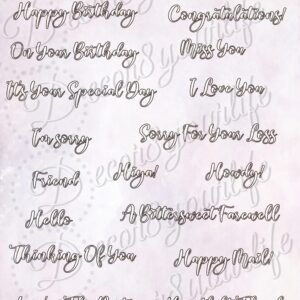 Happy Birthday
Congratulations!
On Your Birthday
Miss You
It's Your Special Day
I Love You
I'm sorry
Sorry For Your Loss
Friend
Hiya!
Howdy!
Hello
A Bittersweet Farewell
Thinking Of You
Happy Mail!
Decors4yourlife